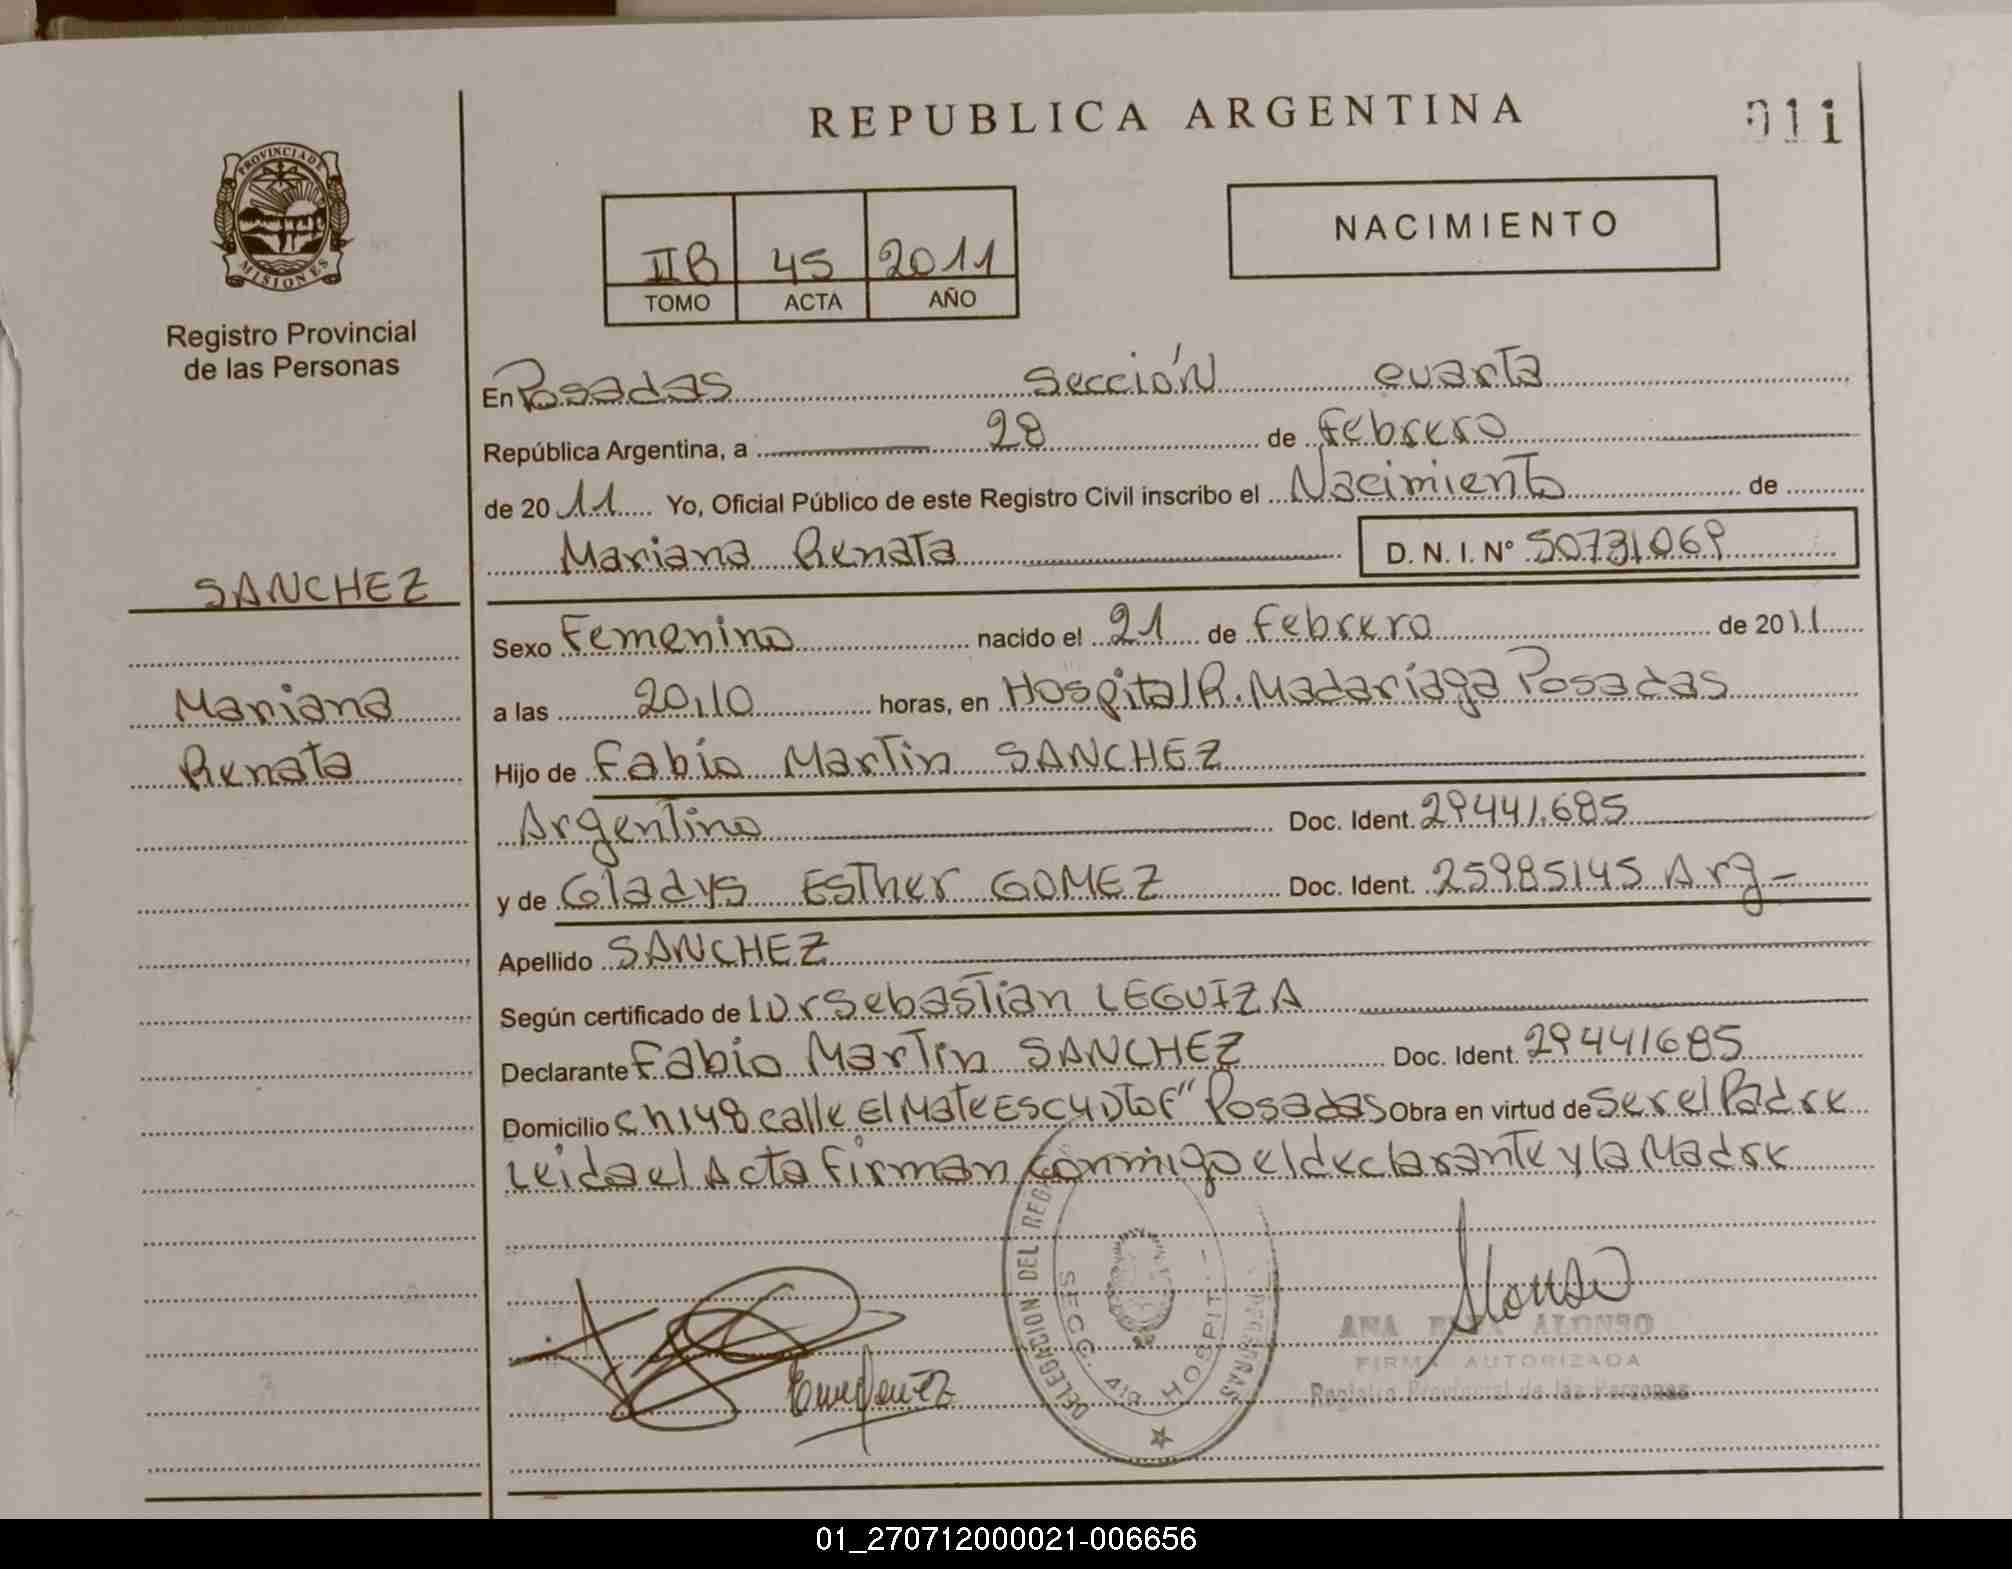 REPUBLICA ARGENTINA
011
PROVINCIA DE
MISIONES
Registro Provincial
de las Personas
IIB 45 2011
TOMO ACTA AÑO
NACIMIENTO
En Posadas Sección cuarta
República Argentina, a 28 de Febrero
de 2011 Yo, Oficial Público de este Registro Civil inscribo el Nacimiento de
Mariana Renata D. N. I. Nº 50731069
SANCHEZ
Mariana
Renata
Sexo Femenino nacido el 21 de Febrero de 2011
a las 20,10 horas, en Hospital R. Madariaga Posadas
Hijo de Fabio Martin SANCHEZ
Argentino Doc. Ident. 29441.685
y de Gladys Esther GOMEZ Doc. Ident. 25985145 Arg-
Apellido SANCHEZ
Según certificado de Dr Sebastian LEGUIZA
Declarante Fabio Martin SANCHEZ Doc. Ident. 29441685
Domicilio Ch 148 calle El Mate Posadas Obra en virtud de ser el Padre
Leida el Acta Firman conmigo el declarante y la Madre
DELEGACION DEL REG
SECC. 4ta HOSPIT.
Alonso
ANA ALONSO
FIRMA AUTORIZADA
Registro Provincial de las Personas
01_270712000021-006656